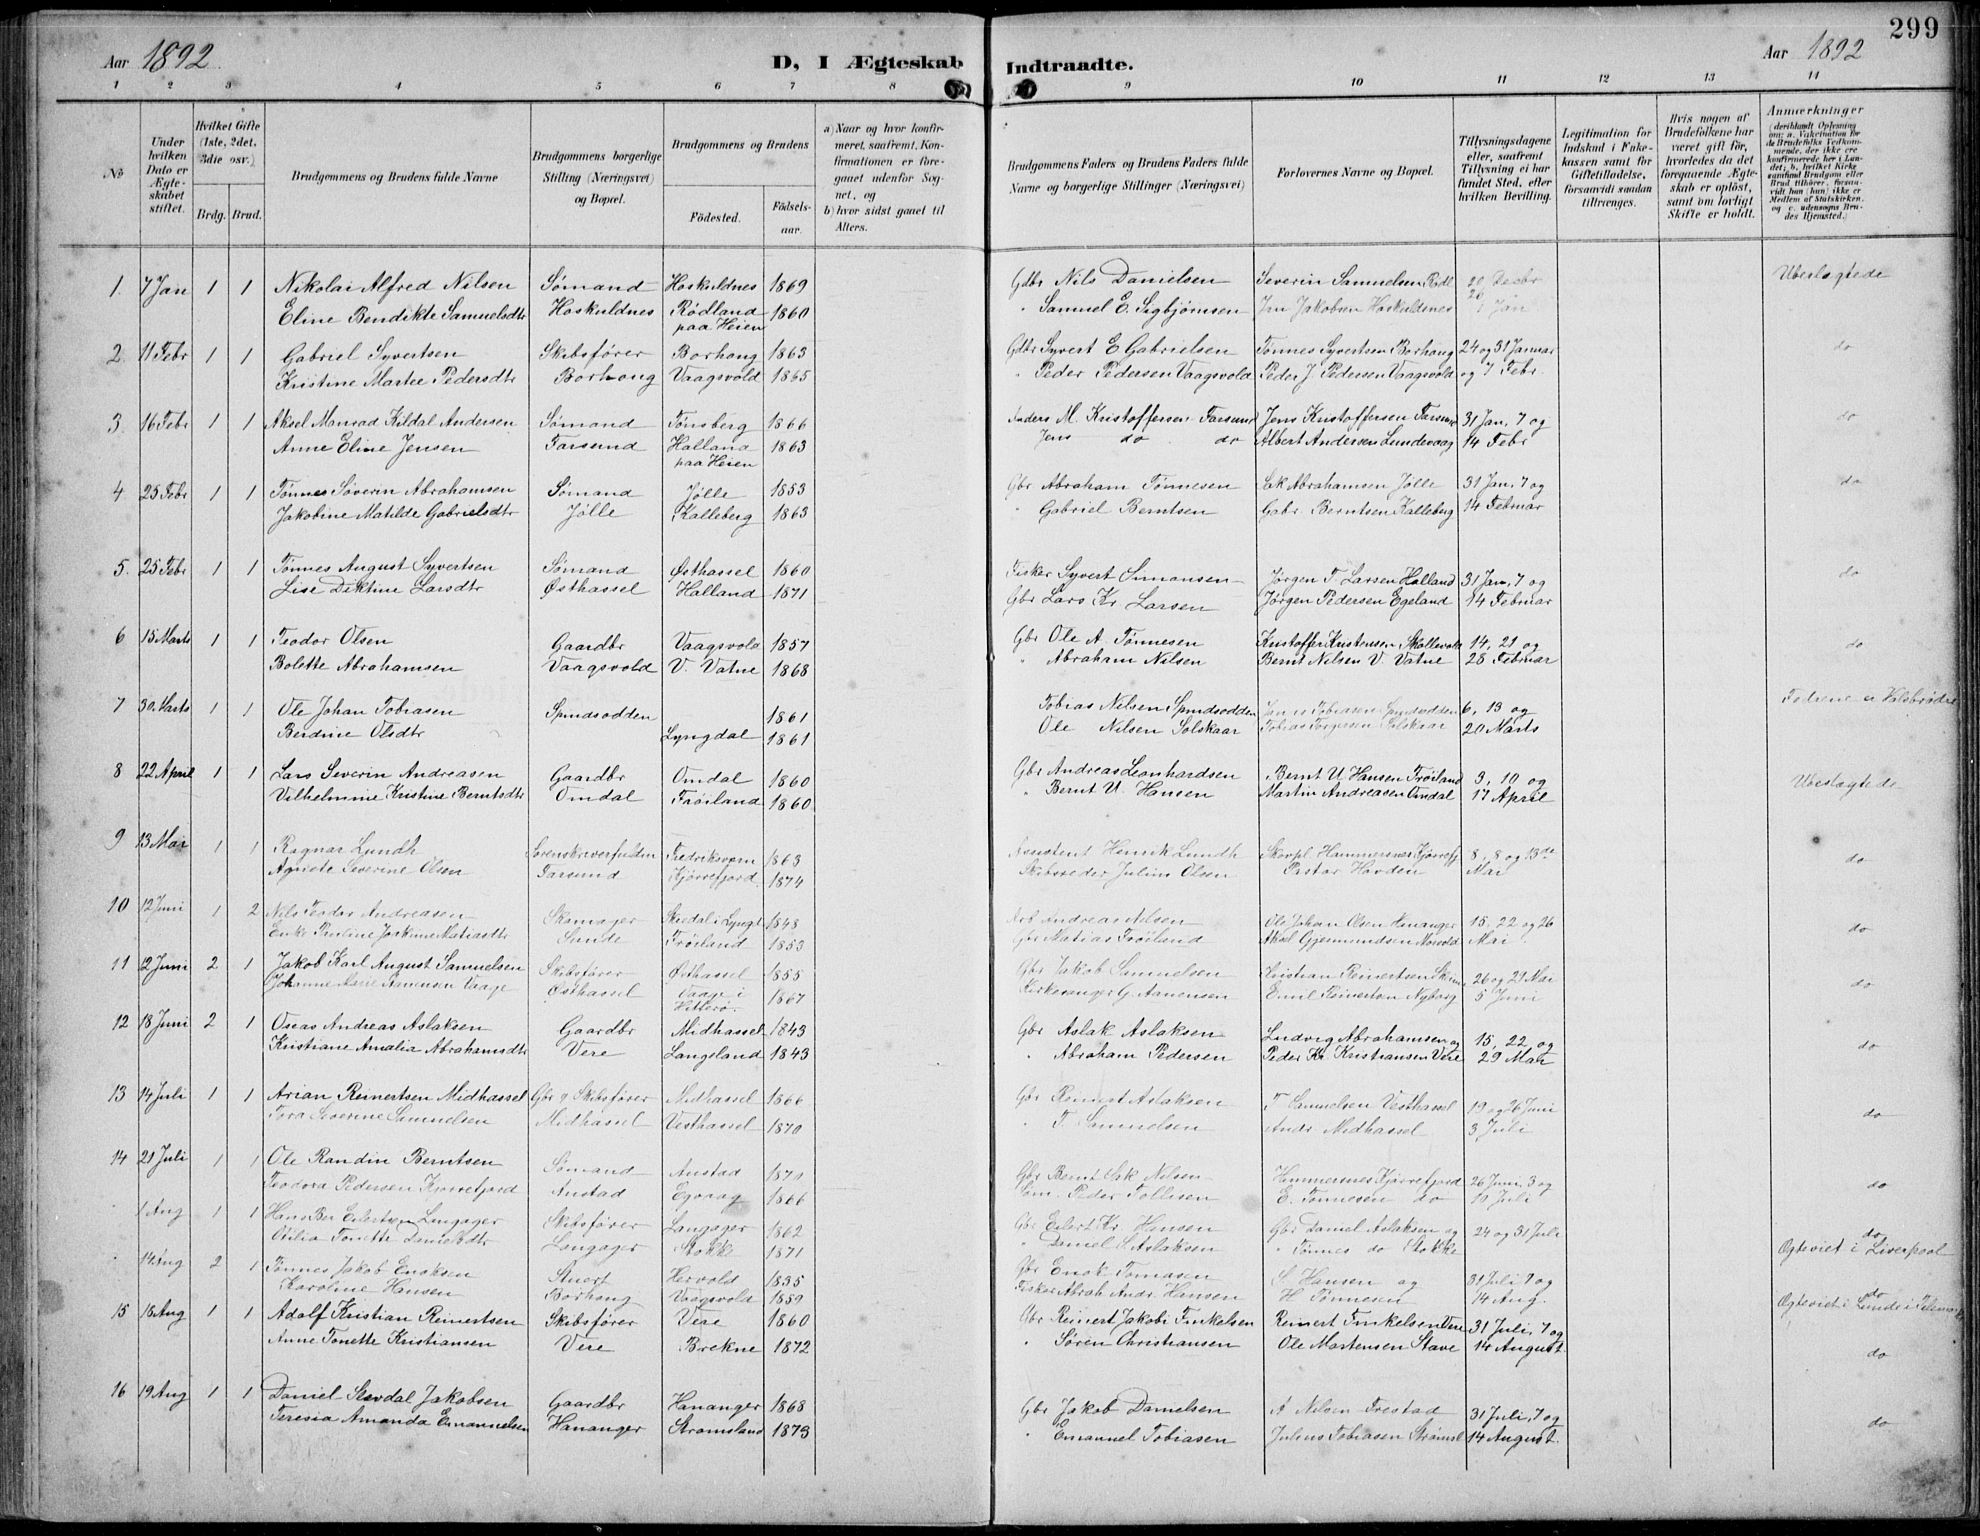 299
Aar 1892
D, I Ægteskab Indtraadte.
Aar 1892
1 2 3 4 5 6 7 8 9 10 11 12 13 14
No
Under hvilken Dato er Ægteskabet stiftet.
Hvilket Gifte (1ste, 2det, 3die osv.)
Brdg. Brud.
Brudgommens og Brudens fulde Navne
Brudgommens borgerlige Stilling (Næringsvei) og Bopæl.
Brudgommens og Brudens
Fødested. Fødselsaar.
a) Naar og hvor konfirmeret, saafremt Konfirmationen er foregaaet udenfor Sognet, og
b) hvor sidst gaaet til Alters.
Brudgommens Faders og Brudens Faders fulde Navne og borgerlige Stillinger (Næringsvei)
Forlovernes Navne og Bopæl.
Tillysningsdagene eller, saafremt Tillysning ei har fundet Sted, efter hvilken Bevilling.
Legitimation for Indskud i Enkekassen samt for Giftetilladelse, forsaavidt saadan tiltrænges.
Hvis nogen af Brudefolkene har været gift før, hvorledes da det foregaaende Ægteskab er opløst, samt om lovligt Skifte er holdt.
Anmærkninger
(deriblandt Oplysning om: a. Vakcination for de Brudefolks Vedkommende, der ikke ere konfirmerede her i Landet; b. hvilket Kirkesamfund Brudgom eller Brud tilhører, forsaavidt han (hun) ikke er Medlem af Statskirken, og c. udensogns Brudes Hjemsted.)
1. 7 Jan 1 1 Nikolai Alfred Nilsen Sømand Hoskuldnes 1869 Gdbr Nils Danielsen Severin Samuelsen Rødl 20 Decbr Ubeslægtede
Eline Bendikte Samuelsdtr Hoskuldnes Rødland paa Heien 1860 " Samuel E. Sigbjørnsen Jen Jakobsen Hoskuldsnes Jan
2. 11 Febr 1 1 Gabriel Syvertsen Skibsfører Borhaug 1863 Gdbr Syvert E Gabrielsen Tønnes Syvertsen Borhaug 24 og 31 Januar do
Kristine Marte Pedersdtr Borhaug Vaagsvold 1865 " Peder Pedersen Vaagsvold Peder J Pedersen Vaagsvold og 7 Febr.
3. 16 Febr 1 1 Aksel Manrad Kildal Andersen Sømand Tønsberg 1866 Anders M. Kristoffersen Farsund Jens Kristoffersen Farsund 31 Jan, 7 og do
Anne Eline Jensen Farsund Halland paa Heien 1863 Jens do do Albert Andersen Lundevaag 14 Febr
4 25 Febr 1 1 Tønnes Søverin Abrahamsen Sømand Jølle 1853 Gbr Abraham Tønnesen Sak Abrahamsen Jølle 31 Jan, 7 og do
Jakobine Matilde Gabrielsdtr Jølle Kalleberg 1863 " Gabriel Berntsen Gabr. Berntsen Kalleberg 14 Februar
5. 25 Febr 1 1 Tønnes August Syvertsen Sømand Østhassel 1860 Fisker Syvert Simonsen Jørgen T. Larsen Halland 31 Jan, 7 og do
Lise Diktine Larsdtr Østhassel Halland 1871 Gbr Lars Kr Larsen Jørgen Pedersen Egeland 14 Februar
6 15 Marts 1 1 Teodor Olsen Gaardbr Vaagsvold 1857 Gbr Ole A. Tønnesen Kristoffer Kristensen Skollevold 14, 21 og do
Bolette Abrahamsen Vaagsvold V. Vatne 1868 " Abraham Nilsen Bernt Nilsen V. Vatne 28 Februar
7 30 Marts 1 1 Ole Johan Tobiasen Spindsodden 1861 Tobias Nilsen Spindsodden Tobiasen Spindsodden 6, 13 og Fedrene er Halvbrødre
Berdine Olsdtr Lyngdal 1861 Ole Nilsen Solskaar Tobias Torgersen Solskaar 20 Marts
8 22 April 1 1 Lars Severin Andreasen Gaardbr Omdal 1860 Gbr Andreas Leonhardsen Bernt U Hansen Frøiland 3, 10 og Ubeslægtede
Vilhelmine Kristine Berntsdtr Omdal Frøiland 1860 " Bernt U. Hansen Martin Andreasen Omdal 17 April
9 13 Mai 1 1 Ragnar Lundh Sorenskriverfuldm Fredriksværn 1863 Assistent Henrik Lundh Skovpl. Hammersnes Kjørrefj 8, 8 og 13de do
Agnete Severine Olsen Farsund Kjørrefjord 1874 Skibsreder Julius Olsen Pastor Hovden Mai
10 12 Juni 1 2 Nils Teodor Andreasen Skomager Skedal i Lyngd 1848 Arb Andreas Nilsen Ole Johan Olsen Hananger 15, 22 og 26 do
Enke Pauline Joakime Matiasdtr Sunde Frøiland 1853 Gbr Matias Frøiland Aksel Gjermundsen Mosvold Mai
11 12 Juni 2 1 Jakob Karl August Samuelsen Skibsfører Østhassel 1855 Gbr Jakob Samuelsen Kristian Reinertsen 26 og 29 Mai do
Johanne Marie Aanensen Vaage Østhassel Vaage i Hitterø 1867 Kirkesanger G. Aanensen Emil Reinertsen Nyborg 5 Juni
12 18 Juni 2 1 Oseas Andreas Aslaksen Gaardbr Midhassel 1843 Gbr Aslak Aslaksen Ludvig Abrahamsen og 15, 22, og do
Kristiane Amalia Abrahamsdtr Vere Langeland 1843 " Abraham Pedersen Peder Kr Kristiansen Vere 29 Mai
13 14 Juli 1 1 Arian Reinertsen Midhassel Gbr og Skibsfører Midhassel 1866 Gbr Reinert Aslaksen T Samuelsen Vesthassel 19 og 26 Juni do
Tora Severine Samuelsen Midhassel Vesthassel 1870 " T. Samuelsen Andr Midhassel 3 Juli
14 21 Juli 1 1 Ole Randin Berntsen Sømand Anstad 1870 Gbr Bernt Sak Nilsen Hammersnes Kjørrefjord 26 Juni, 3 og do
Teodora Pedersen Kjørrefjord Anstad Egvaag 1866 Peder Tollisen E. Tønnesen do 10 Juli
" 1 Aug 1 1 Hans Ber Eilertsen Langager Skibsfører Langager 1862 Gbr Eilert Kr. Hansen Gbr Daniel Aslaksen og 24 og 31 Juli do
Otilia Tonette Danielsdtr Langager Stokke 1871 " Daniel S Aslaksen " Tønnes do Stokke Ogteviet i Liverpool
" 14 Aug 2 1 Tønnes Jakob Enoksen Stuert Hervold 1835 Gbr Enok Tomasen S. Hansen og 31 Juli 7 og do
Karoline Hansen Borhaug Vaagsvold 1859 Fisker Abrah Andr. Hansen H Tønnesen 14 Aug. Ogteviet i Sunde i
15 18 Aug 1 1 Adolf Kristian Reinertsen Skibsfører Vere 1860 Gbr Reinert Jakobi Finkelsen Reinert Finkelsen Vere 31 Juli, 7 og do
Anne Tonette Kristiansen Vere Brekne 1872 " Søren Christiansen Ole Mortensen Stave 14 August
16 19 Aug 1 1 Daniel Stevdal Jakobsen Gaardbr Hananger 1868 Gbr Jakob Danielsen A Nilsen Frestad 31 Juli, 7 og do
Teresia Amanda Emanuelsen Hananger Strømsland 1873 " Emanuel Tobiasen Julius Tobiasen Strømsl 14 August.